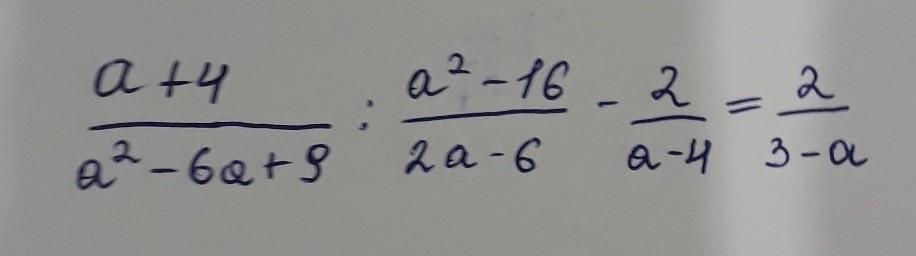 a+4/a²-6a+9 : a²-16/2a-6 - 2/a-4 = 2/3-a